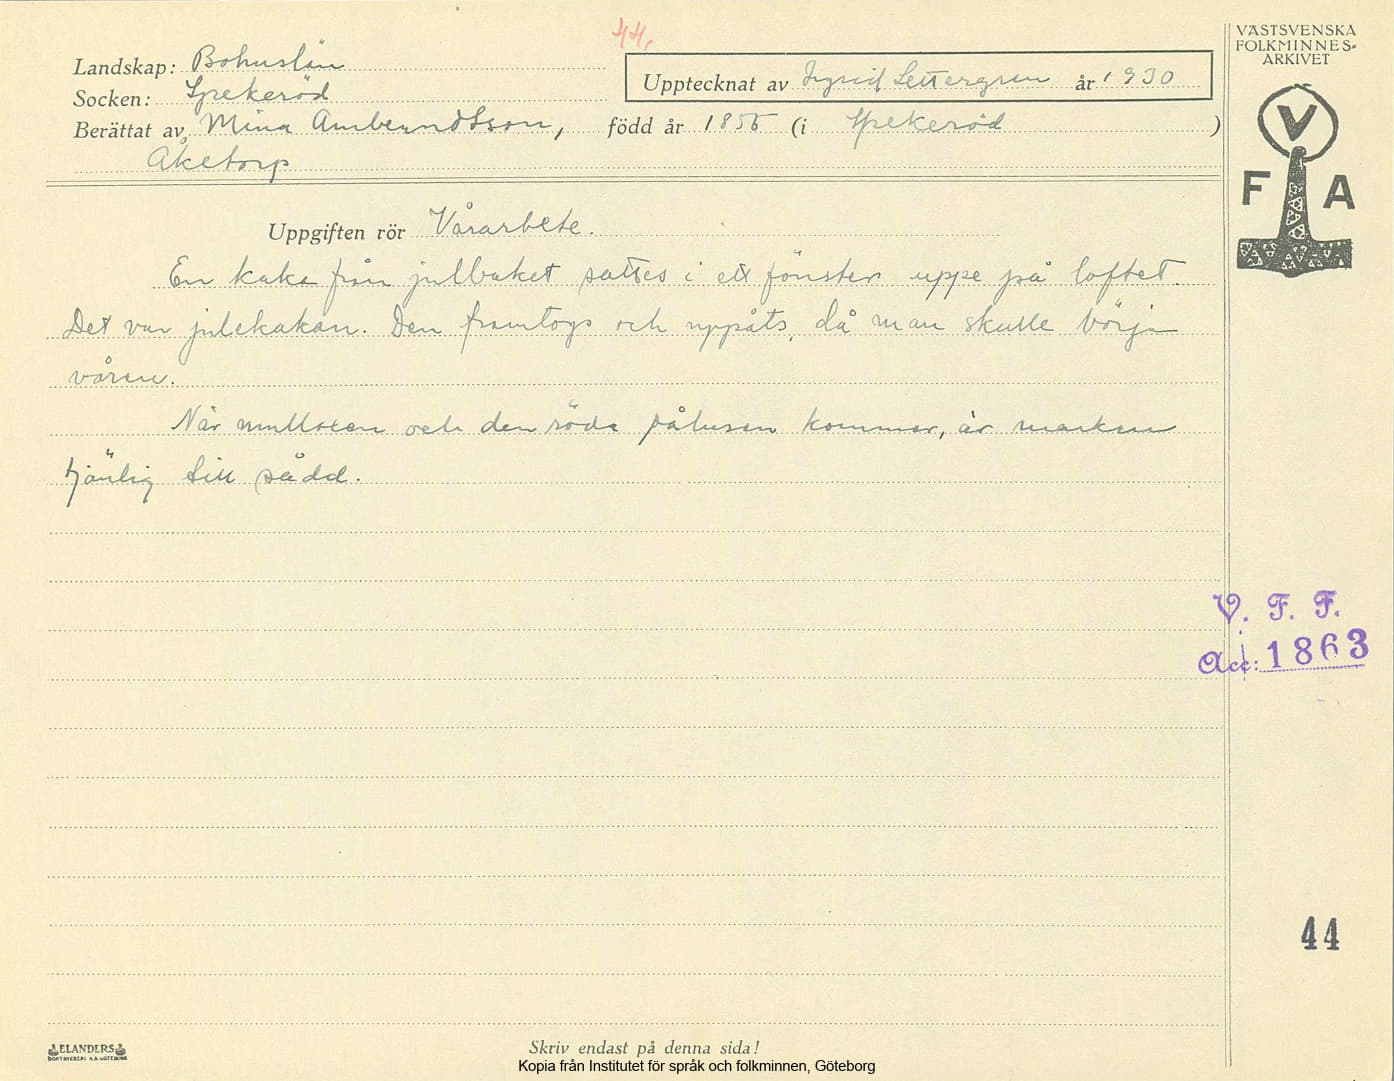 44.
VÄSTSVENSKA
FOLKMINNES-
ARKIVET
V
F A
Landskap: Bohuslän
Upptecknat av Ingrid Settergren år 1930
Socken: Spekeröd
Berättat av Mina Amberndtson, född år 1855 (i Spekeröd)
Åketorp
Uppgiften rör Vårarbete.
En kaka från julbaket sattes i ett fönster uppe på loftet.
Det var julekakan. Den framtogs och uppåts, då man skulle börja
våren.
När mulloxen och den röda pålusen kommer, är marken
tjänlig till sådd.
V. F. F.
Acc: 1863
44
ELANDERS
Skriv endast på denna sida!
Kopia från Institutet för språk och folkminnen, Göteborg